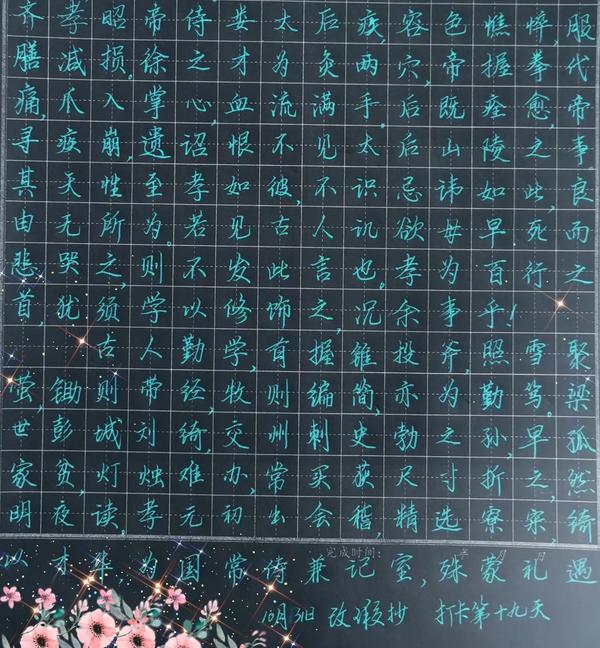 齐孝昭帝侍娄太后疾,容色憔悴,服
膳减损。徐之才为灸两穴,帝握拳代
痛,爪入掌心,血流满手。后既痊愈,帝
寻疾崩,遗诏恨不见太后山陵之事。
其天性至孝如彼,不识忌讳如此,良
由无所为。若见古人讥欲毋早死而
悲哭之,则不发此言也。孝为百行之
首,犹须学以修饰之,况余事乎!
古人勤学,有握锥投斧,照雪聚
萤,锄则带经,牧则编简,亦为勤笃。梁
世彭城刘绮,交州刺史勃之孙,早孤
家贫,灯烛难办,常买荻尺寸折之,然
明夜读。孝元初出会稽,精选寮寀,绮
以才华,为国常侍兼记室,殊蒙礼遇
完成时间:
10月31日 改瑕抄 打卡第十九天